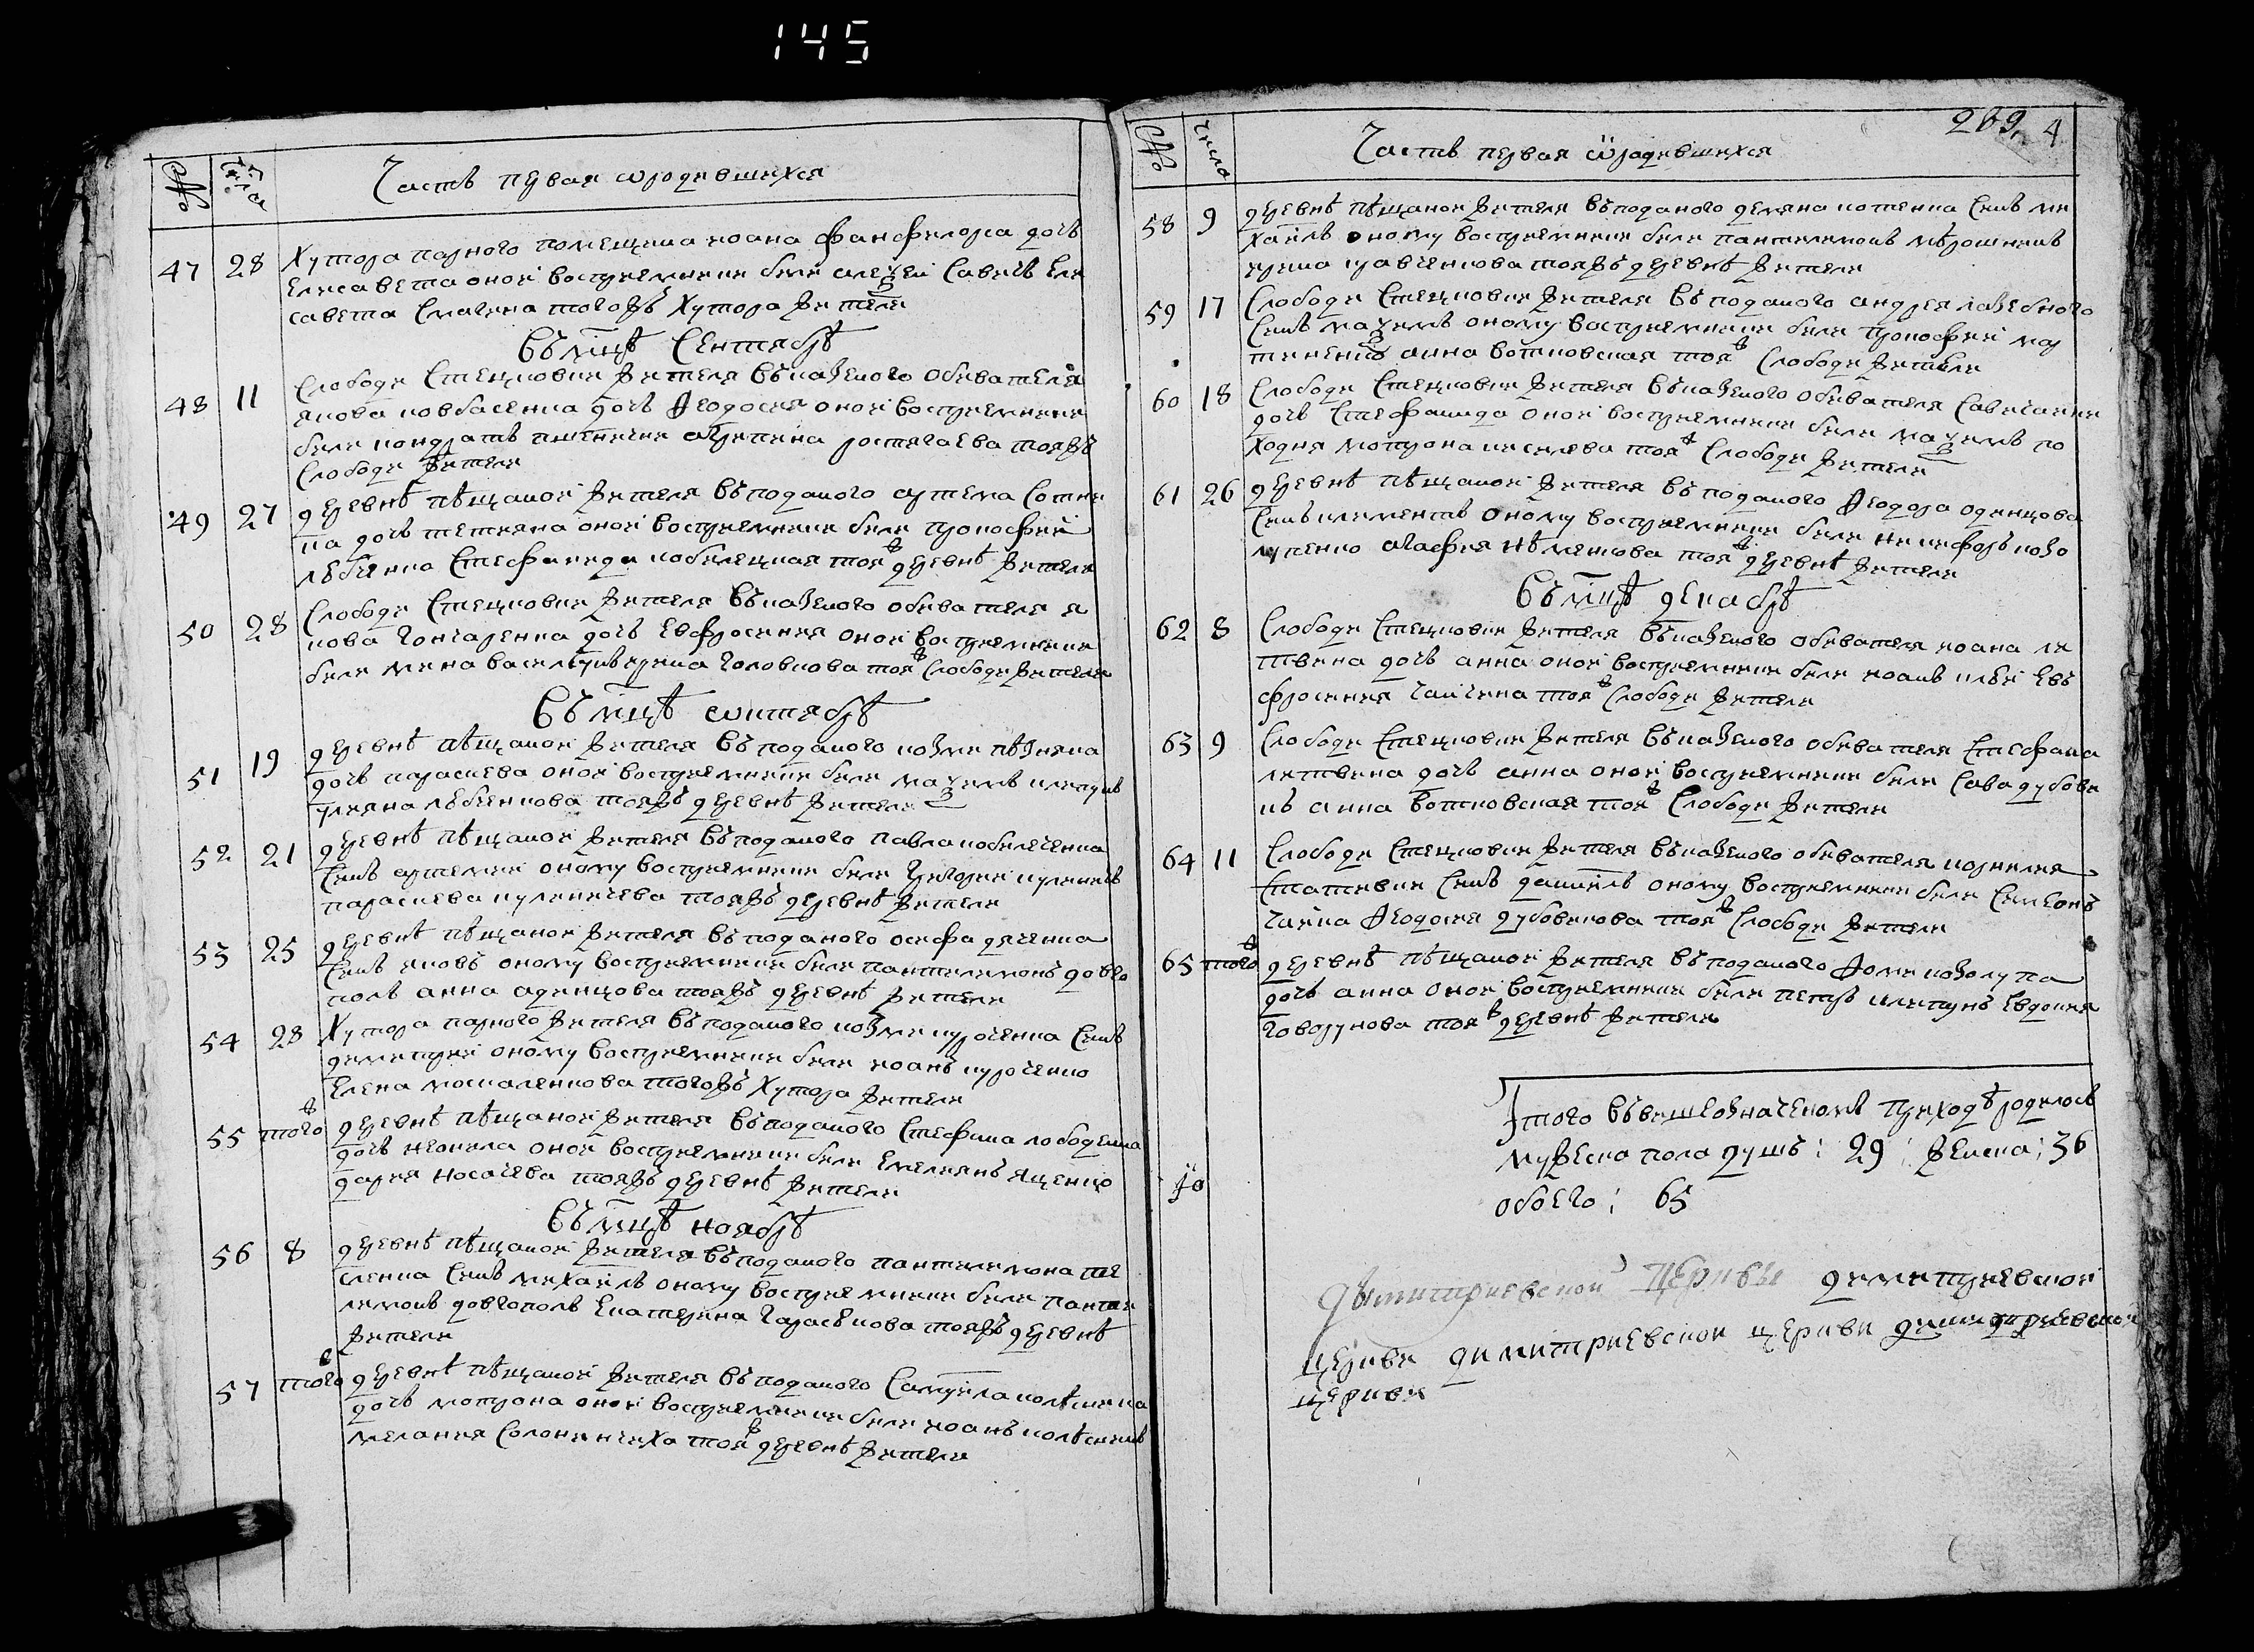 145
№ Числа Часть первая ѡ родившихся
47 28 Хутора парного помещика иоана фанфилора дочь
Елисавета оной восприемники были алеѯеи Савичь Ели
савета Смагина тогожъ Хутора жители
Въ мцѣ Сентябрѣ
48 11 Слободи Стецковки жителя въ казеного обивателя
якова ковбасенка дочь Ѳеодосия оной восприемники
были кондратъ пшенични агрипина ростягаева тояжъ
Слободи жители
49 27 деревнѣ пѣщаной жителя въ поданого артема Сотни
ка дочь тетияна оной восприемники били прокофий
лѣбченко Стефанида кобилецкая тояж деревнѣ жители
50 28 Слободи Стецковки жителя въ казеного обивателя я
кова гончаренка дочь Евфросиния оной восприемники
били мина василцивъ ирина головкова тояж Слободи жители
Въ мцѣ ѡктябрѣ
51 19 деревнѣ пѣщаной жителя въ поданого козми пѣзняка
дочь параскева оной восприемники били маѯимъ клитунъ
улияна лѣбченкова тояжъ деревнѣ жители
52 21 деревнѣ пѣщаной жителя въ поданого павла кобиличенка
Синъ артемий оному восприемники били григорий куликивъ
параскева куликичева тояжъ деревнѣ жители
53 25 деревнѣ пѣщаной жителя въ поданого осифа дяченка
Синъ яковъ оному восприемники били пантилимонъ довго
полъ анна адинцова тояжъ деревнѣ жители
54 28 Хутора парного жителя въ поданого козми курочепка Синъ
димитрий оному восприемники били иоанъ курочепко
Елена москаленкова тогожъ Хутора жители
55 тогож деревнѣ пѣщаной жителя въ поданого Стефана лободенка
дочь неонила оной восприемники били Емелиянъ Яценко
дария носачева тояжъ деревнѣ жители
Въ мцѣ ноябрѣ
56 8 деревнѣ пѣщаной жителя въ поданого пантилимона те
сленка Синъ михаилъ оному восприемники били панти
лимонъ довгополъ Екатерина гарасѣкова тояжъ деревнѣ
жители
57 тогож деревнѣ пѣщаной жителя въ поданого Самуила колѣсника
дочь мотрона оной восприемники били иоанъ колѣсникъ
мелания Солониничиха тояж деревнѣ жители
№ Число Часть первая ѿ родившихся 269. 4
58 9 деревнѣ пѣщаной жителя въ поданого демяна котенка Синъ ми
хаилъ оному восприемники били пантилимонъ мѣрошникъ
ирина кравченкова тояжъ деревнѣ жители
59 17 Слободи Стецковки жителя въ поданого андрея лазебного
Синъ маѯимъ оному восприемники били прокофий мар
тиненко анна вотковская тояж Слободи жители
60 18 Слободи Стецковки жителя въ казеного обивателя
дочь Стефанида оной восприемники били маѯимъ по
ходня мотрона киселева тояж Слободи жители
61 26 деревнѣ пѣщаной жителя въ поданого Ѳеодора одинцова
Синъ климентъ оному восприемники били никифоръ козо
лупенко агафия нѣлитова тояж деревнѣ жители
Въ мцѣ декабрѣ
62 8 Слободи Стецковки жителя въ казеного обивателя иоана ли
твина дочь анна оной восприемники били иоанъ илѣи Евъ
фросиния чаичина тояж Слободи жители
63 9 Слободи Стецковки жителя въ казеного обивателя Стефана
литвина дочь анна оной восприемники били Сава дубови
къ анна вотковская тояж Слободи жители
64 11 Слободи Стецковки жителя въ казеного обивателя корнилия
Статевки Синъ даниилъ оному восприемники били Симеонъ
чаика Ѳеодосия дубовикова тояж Слободи жители
65 тогож деревнѣ пѣщаной жителя въ поданого Ѳоми козолупа
дочь анна оной восприемники били петръ клитунъ Евдокия
говорунова тояж деревнѣ жители
Итого въ вишеозначеномъ приходѣ родилось
мужеска пола душъ: 29: женска: 36
обоего: 65
Димитриевской церквы димитриевской
церкви димитриевскои церкви димитриевской
церкви